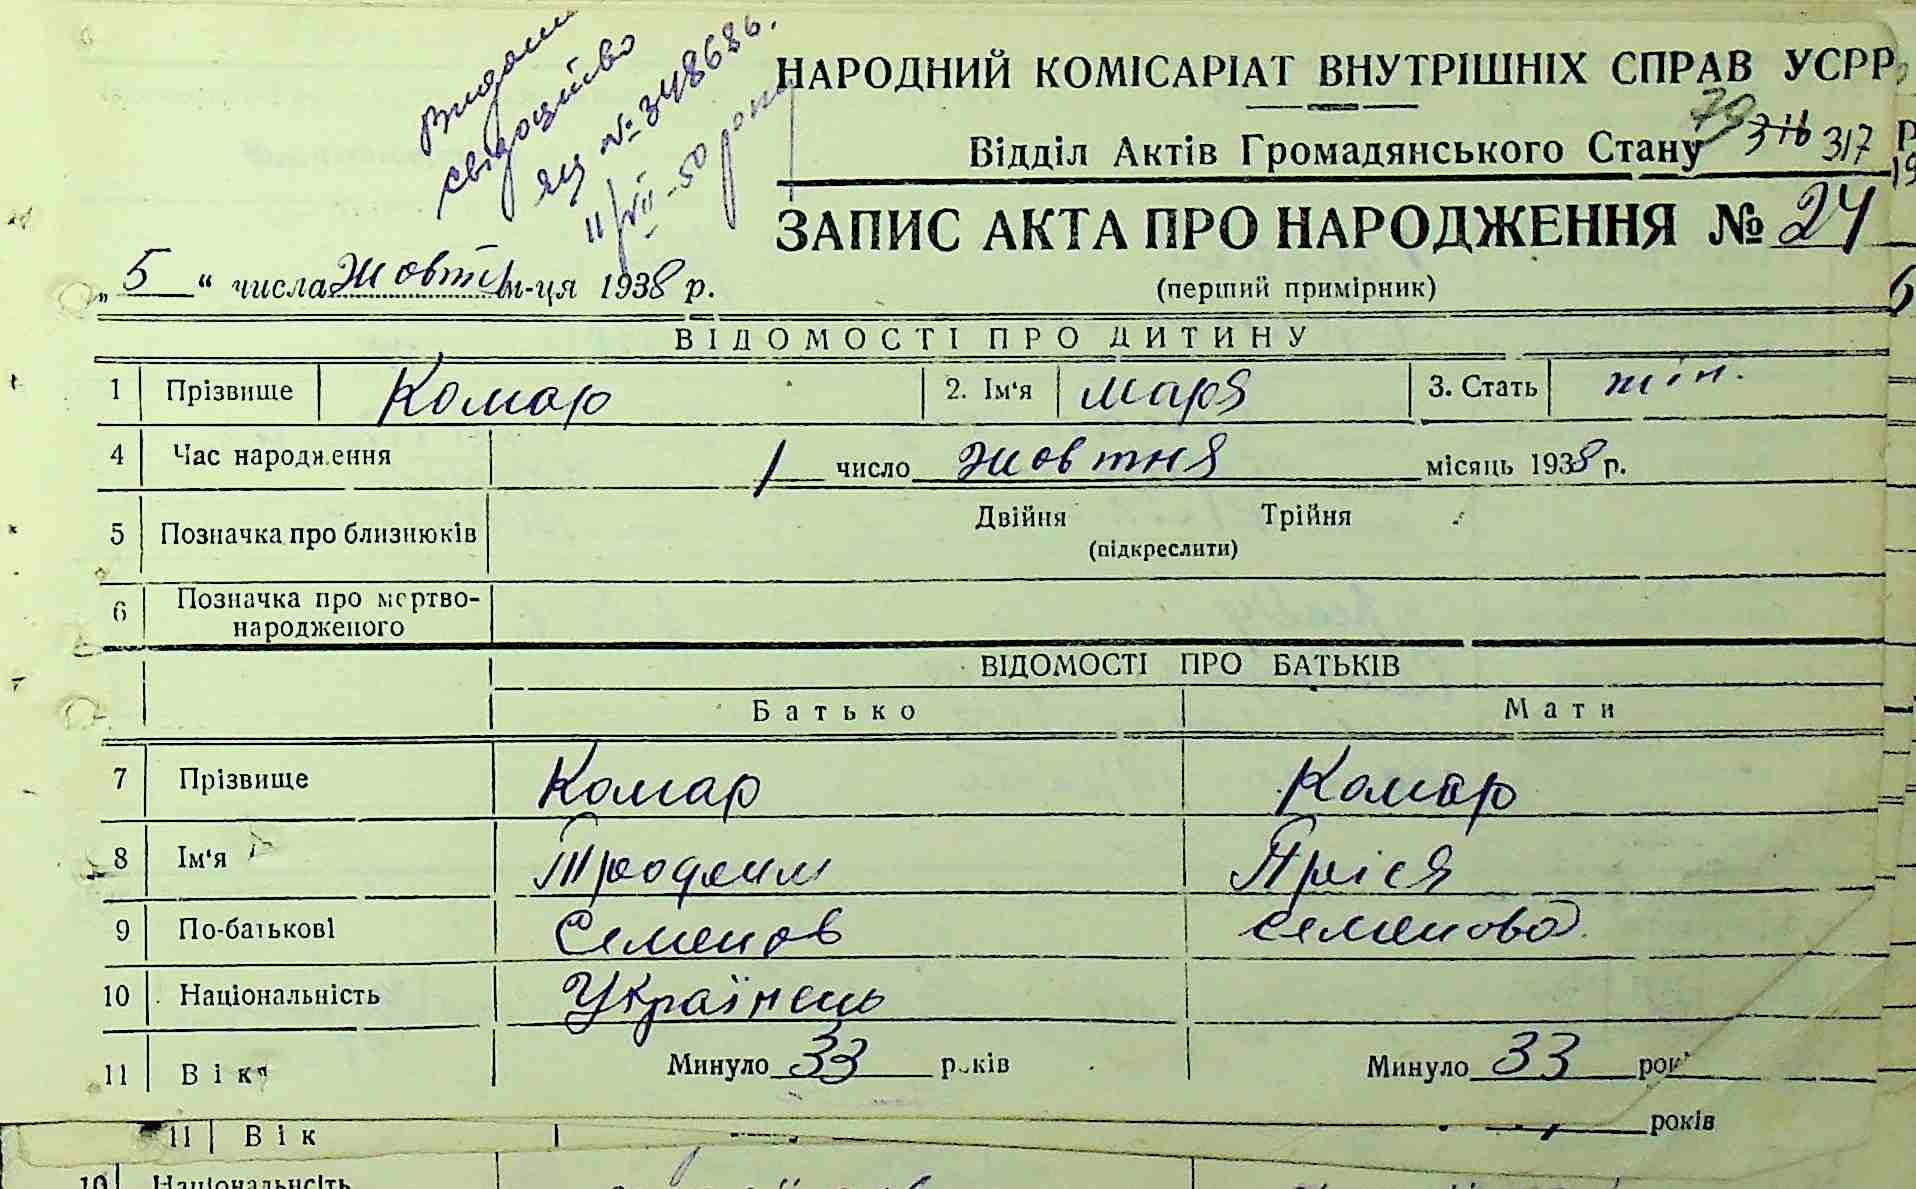 Видано
свідоцтво
яц № 348686.
11/VII-50 року
НАРОДНИЙ КОМІСАРІАТ ВНУТРІШНІХ СПРАВ УСРР
79 316 317
Відділ Актів Громадянського Стану
ЗАПИС АКТА ПРО НАРОДЖЕННЯ № 24
„ 5 “ числа жовтн м-ця 1938 р.
(перший примірник)
ВІДОМОСТІ ПРО ДИТИНУ
1 Прізвище Комар 2. Ім‘я Маря 3. Стать жін.
4 Час народження 1 число жовтня місяць 1938 р.
5 Позначка про близнюків Двійня Трійня
(підкреслити)
6 Позначка про мертво-
народженого
ВІДОМОСТІ ПРО БАТЬКІВ
Батько Мати
7 Прізвище Комар Комар
8 Ім‘я
9 По-батькові Семенов Семенова
10 Національність Українець
11 Вік Минуло 33 років Минуло 33 рок
11 Вік років
10 Національність